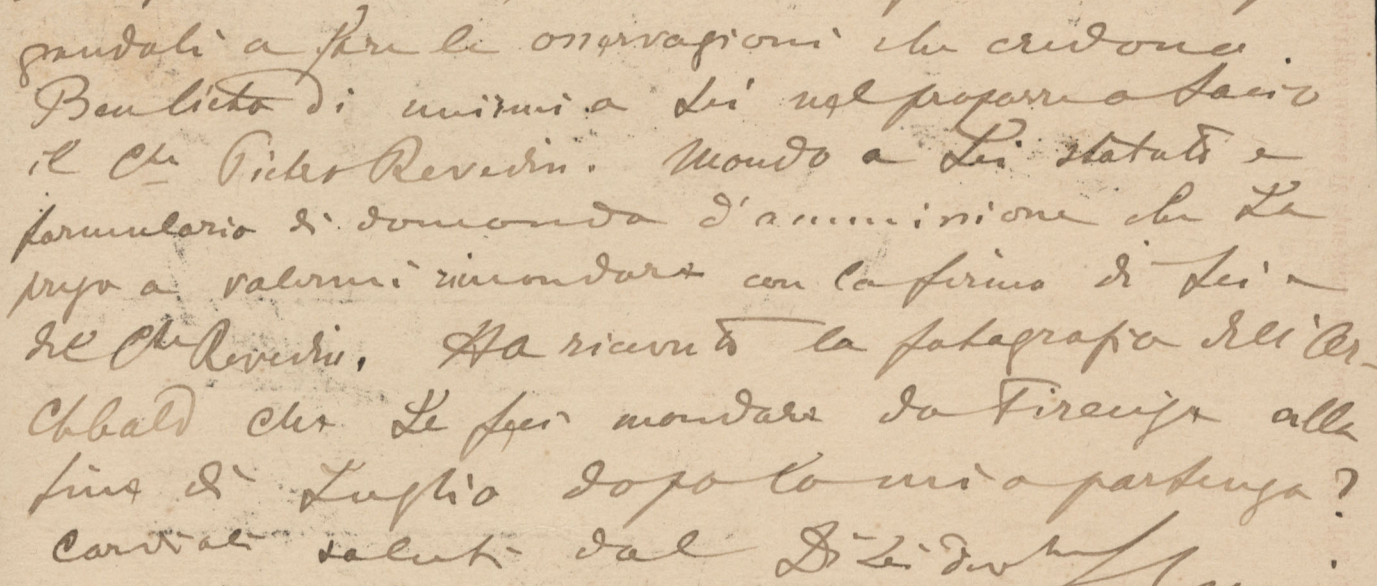 pregandoli a fare le osservazioni che credono.
Ben lieto di unirmi a Lei nel proporre a Socio
il Cte Pietro Revedin. Mando a Lei statuto e
formulario di domanda d'ammissione che La
prego a volermi rimandare con la firma di Lei e
del Cte Revedin. Ha ricevuto la fotografia dell'Ar-
chbald che Le feci mandare da Firenze alla
fine di Luglio dopo la mia partenza?
Cordiali saluti dal Di Lei dev